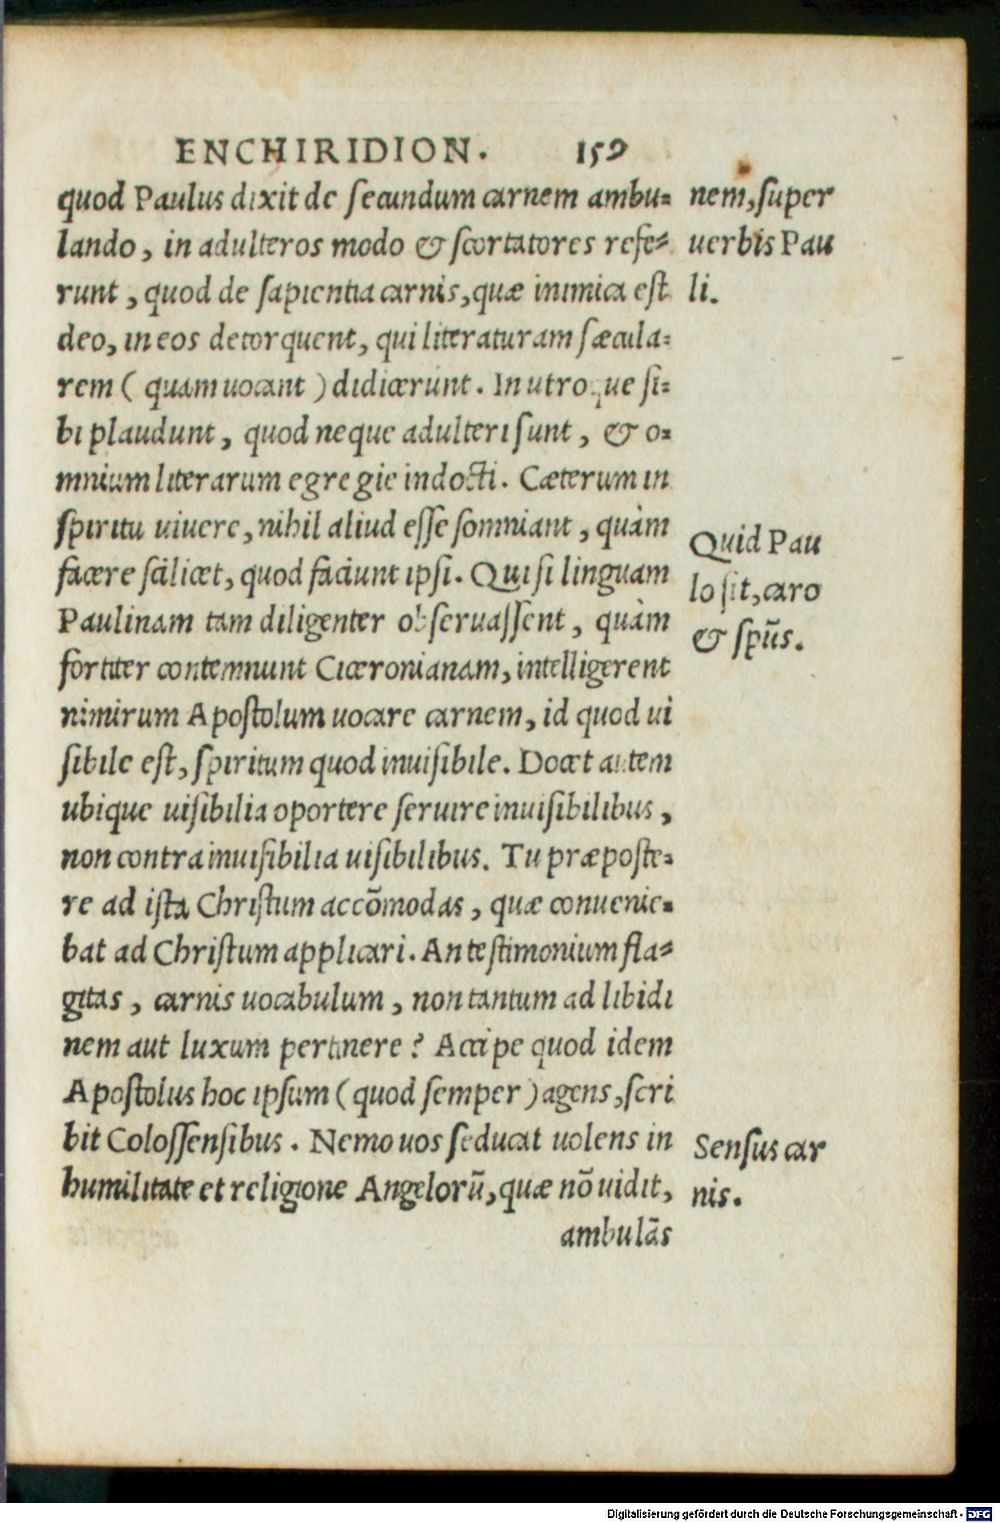 ENCHIRIDION. 159
quod Paulus dixit de secundum carnem ambu=
lando, in adulteros modo & scortatores refe=
runt, quod de sapientia carnis, quæ inimica est
deo, in eos detorquent, qui literaturam sæcula=
rem ( quam uocant ) didicerunt. In utroque si=
bi plaudunt, quod neque adulteri sunt, & o=
mnium literarum egregie indocti. Cæterum in
spiritu uiuere, nihil aliud esse somniant, quàm
facere scilicet, quod faciunt ipsi. Qui si linguam
Paulinam tam diligenter obseruassent, quàm
fortiter contemnunt Ciceronianam, intelligerent
nimirum Apostolum uocare carnem, id quod ui
sibile est, spiritum quod inuisibile. Docet autem
ubique uisibilia oportere seruire inuisibilibus,
non contra inuisibilia uisibilibus. Tu præposte=
re ad ista Christum accõmodas, quæ conuenie=
bat ad Christum applicari. An testimonium fla=
gitas, carnis uocabulum, non tantum ad libidi
nem aut luxum pertinere? Accipe quod idem
Apostolus hoc ipsum ( quod semper ) agens, scri
bit Colossensibus. Nemo uos seducat uolens in
humilitate et religione Angelorũ, quæ nõ uidit,
ambulãs
nem, super
uerbis Pau
li.
Quid Pau
lo sit, caro
& spũs.
Sensus car
nis.
Digitalisierung gefördert durch die Deutsche Forschungsgemeinschaft - DFG